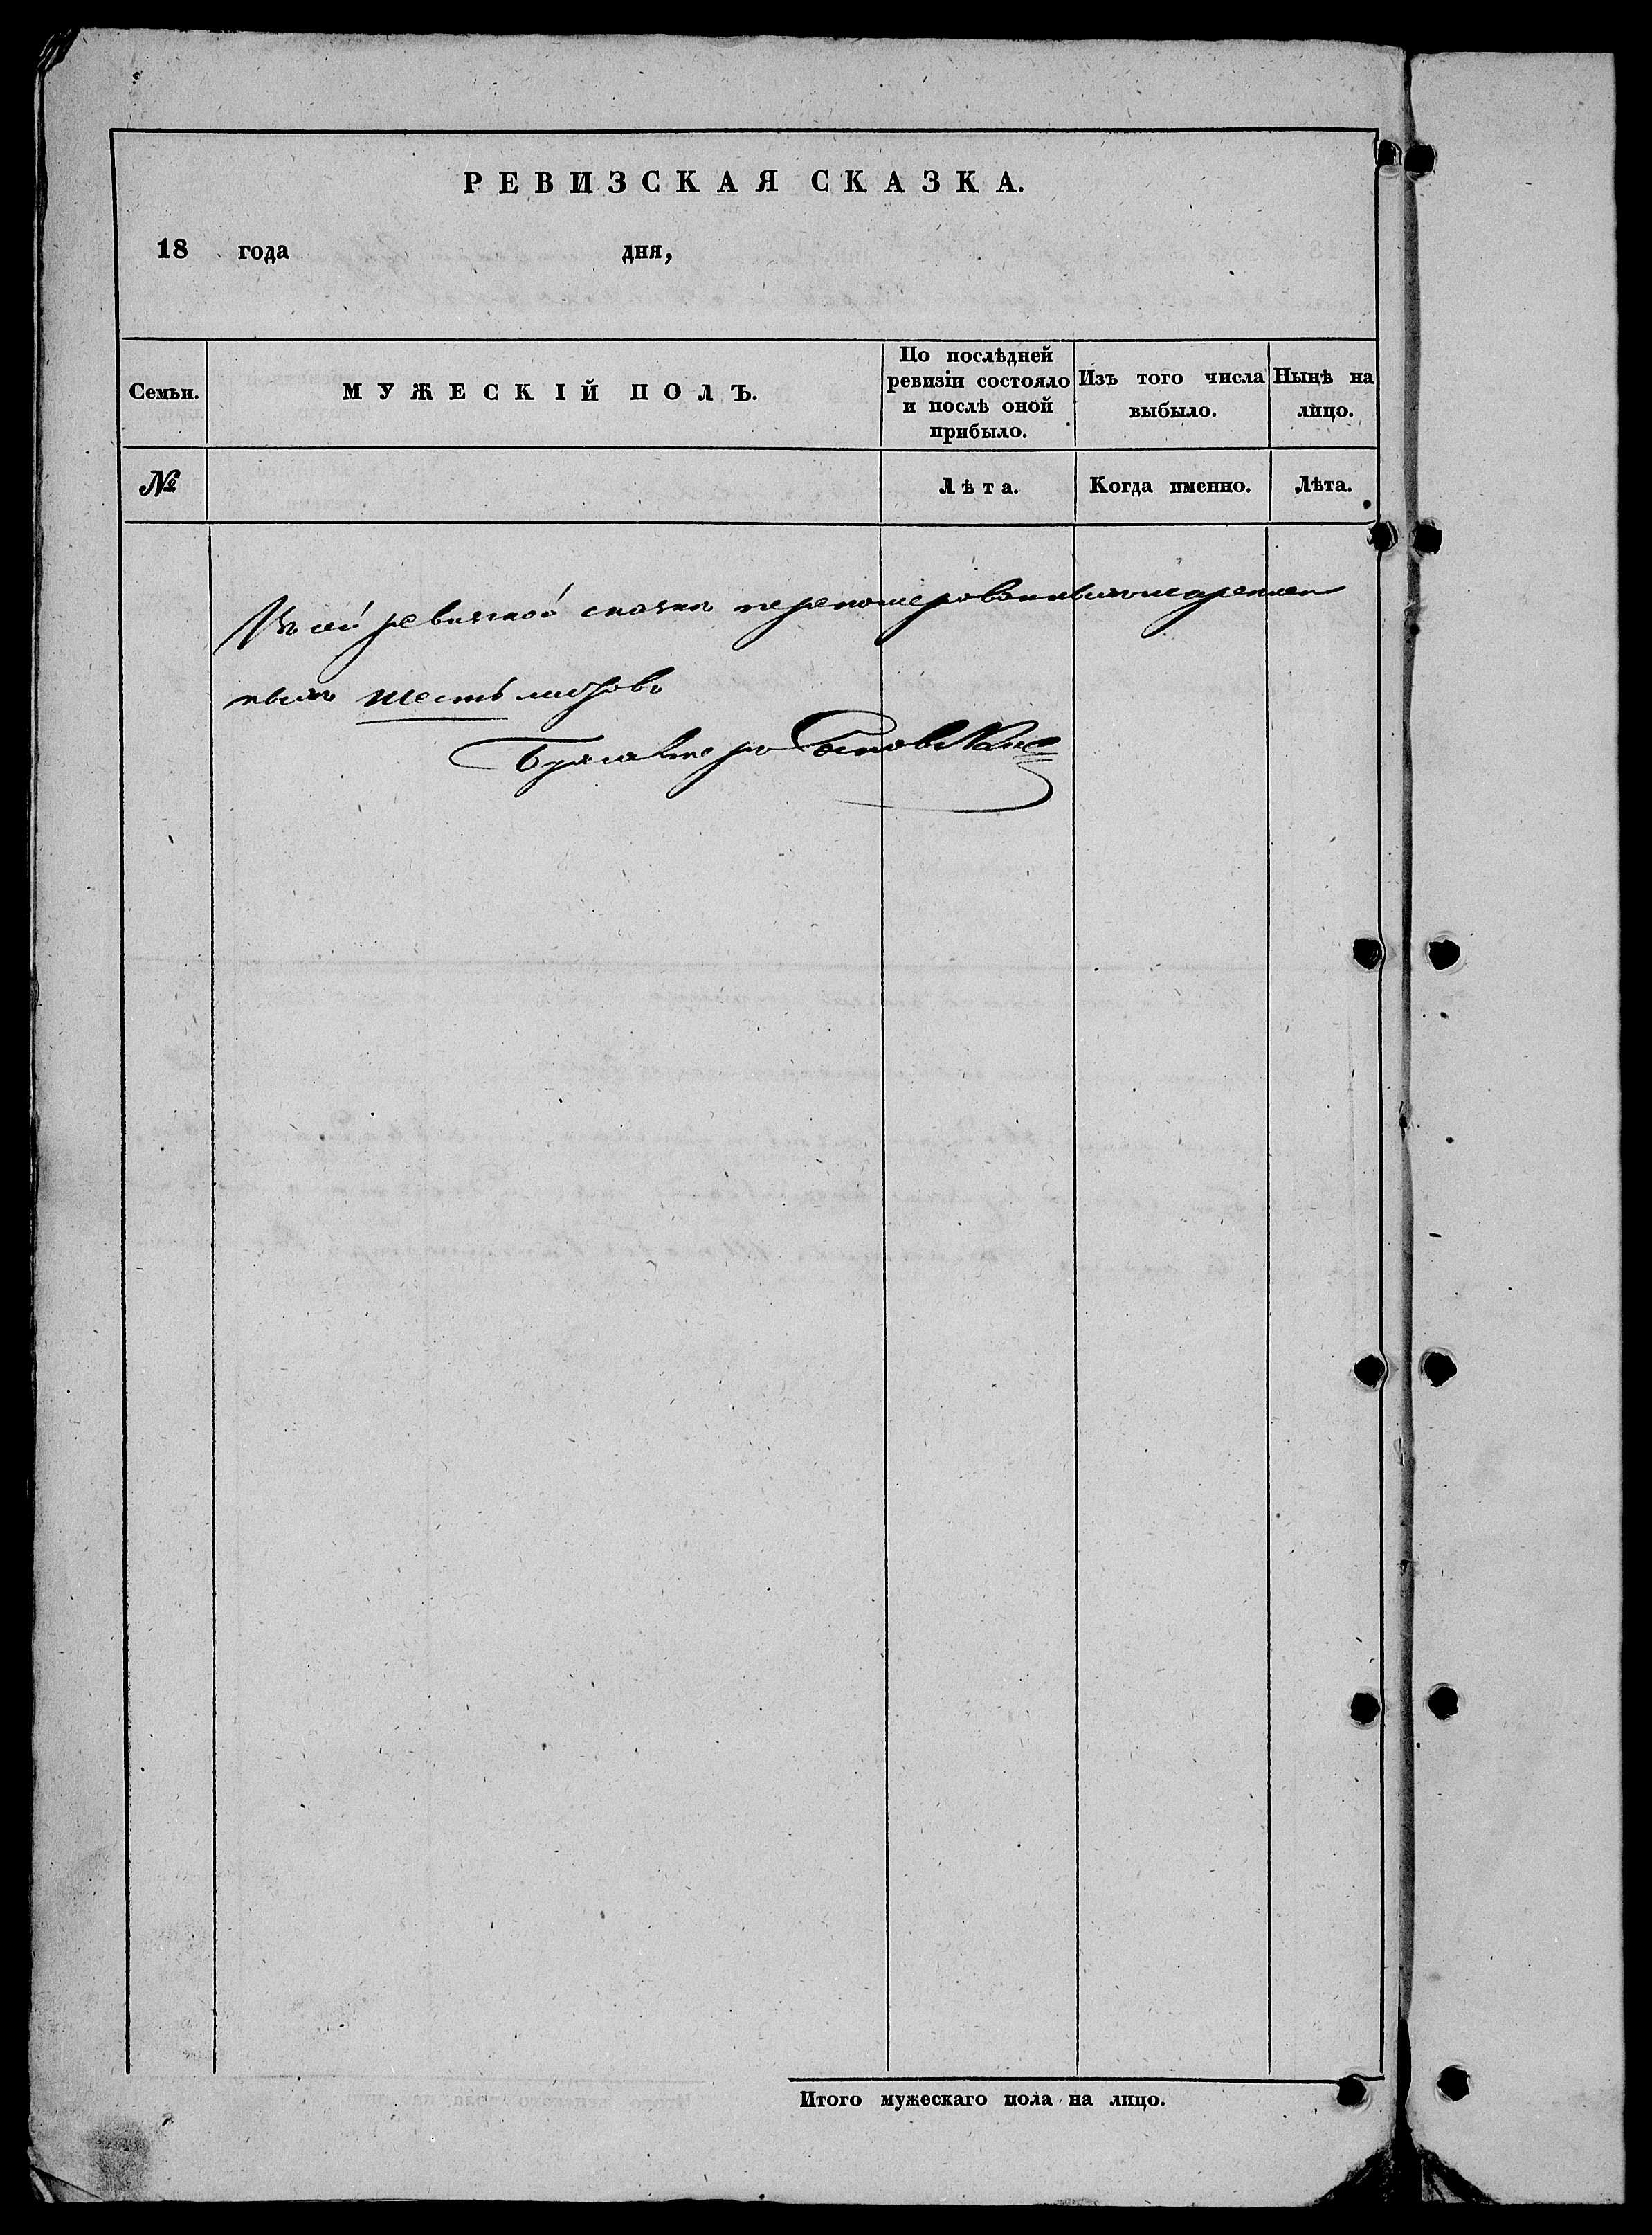 РЕВИЗСКАЯ СКАЗКА.
18 года дня,
Семьи.
МУЖЕСКІЙ ПОЛЪ.
По послѣдней
ревизіи состояло
и послѣ оной
прибыло.
Изъ того числа
выбыло.
Нынѣ на
лицо.
№
Лѣта.
Когда именно.
Лѣта.
Въ сей ревизской сказкѣ перенумерованныхъ и скреплен
ныхъ шесть листовъ
Бухгалтеръ
Итого мужескаго пола на лицо.